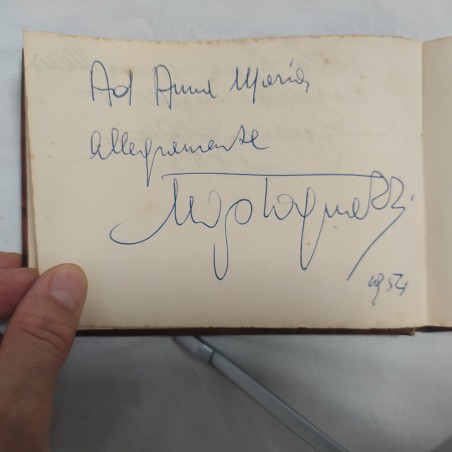 Ad Anna Maria
allegramente
Ugo Tognazzi
1954